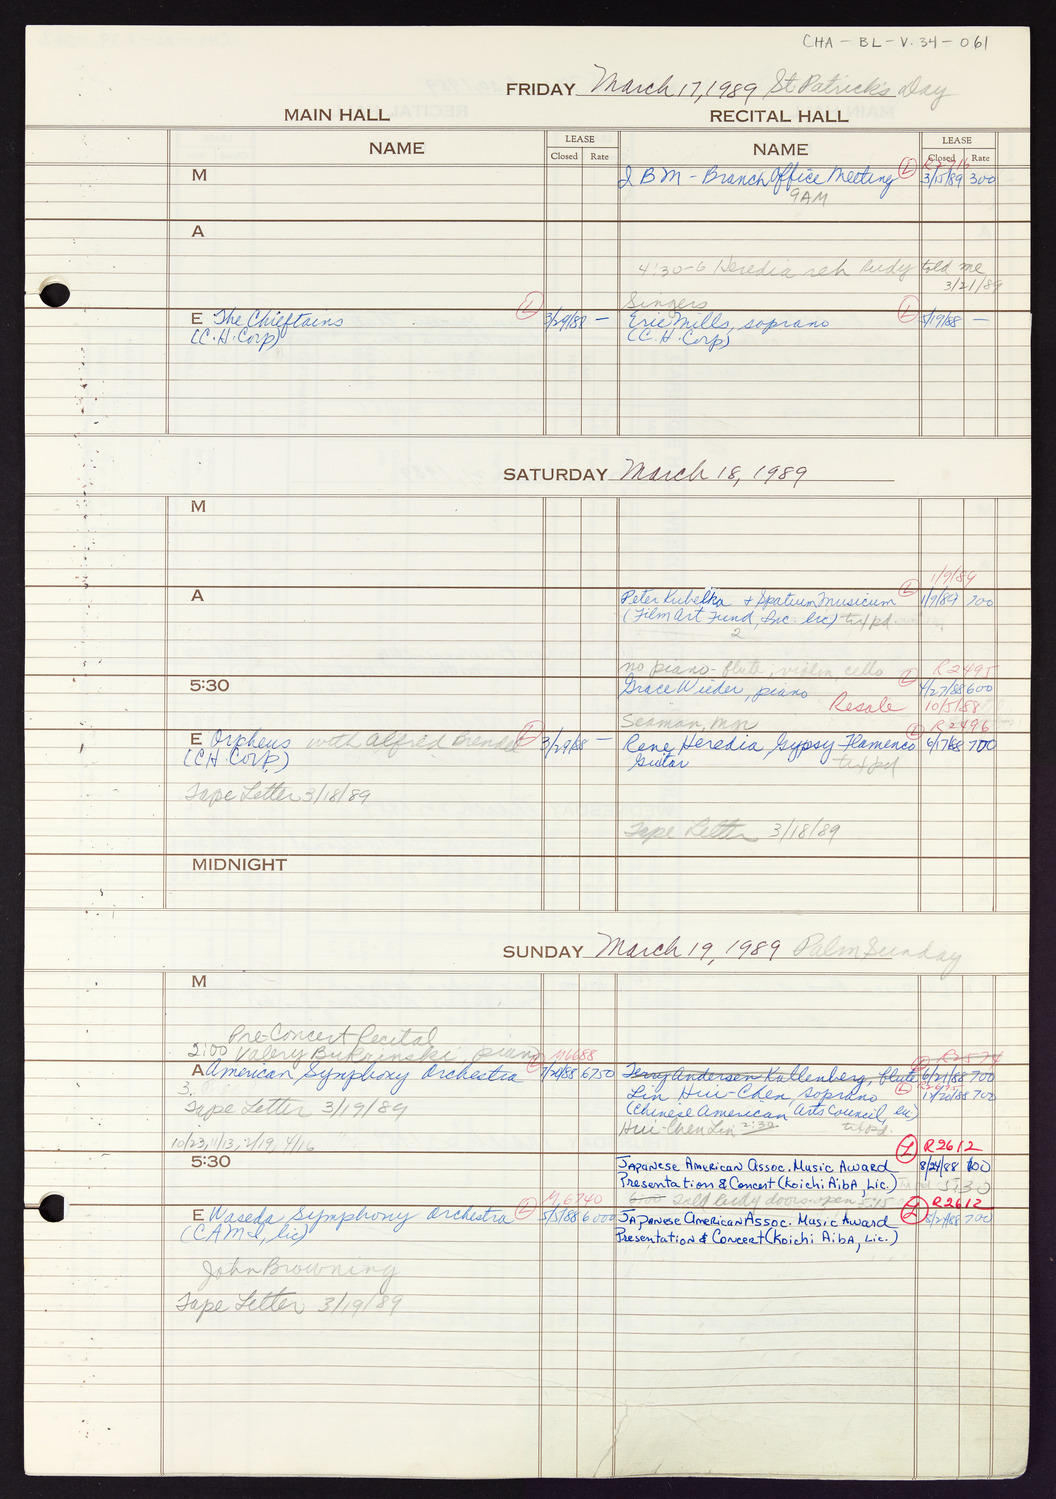 CHA - BL - V. 34 - 061
FRIDAY March 17, 1989 St. Patrick's Day
MAIN HALL RECITAL HALL
NAME LEASE NAME LEASE
Closed Rate Closed Rate
M IBM - Branch Office Meeting L 3/15/89 300
9AM
A
4:30-6 Heredia reh Judy told me
3/21/89
Singers
E The Chieftains L 3/29/88 — Eric Mills, soprano L 5/19/88 —
(C.H. Corp) (C.H. Corp)
SATURDAY March 18, 1989
M
1/9/89
A Peter Kubelka + Spatium Musicum L 1/9/89 700
(Film Art Fund, Inc. lic) txt pd
2
no piano - flute, violin, cello R2495
5:30 Grace Wieder, piano L 4/27/88 600
Resale 10/5/88
Seaman, mn R2496
E Orpheus with Alfred Brendel L 3/29/88 — Rene Heredia, Gypsy Flamenco L 6/7/88 700
(C.H. Corp) Guitar txt pd
Tape Letter 3/18/89
Tape Letter 3/18/89
MIDNIGHT
SUNDAY March 19, 1989 Palm Sunday
M
Pre-Concert Recital
2:00 Valery Bukrinski, piano M6688 R2574
A American Symphony Orchestra 6750 Terry Andersen Kallenberg, flute L 6/21/88 700
3. Lin Hui-Chen, soprano L 11/20/88 700
Tape Letter 3/19/89 (Chinese American Arts Council, lic)
Hui-Chen Lin 2:30 txt pd.
10/23, 11/13, 2/19, 4/16
L R2612
5:30 Japanese American Assoc. Music Award 8/24/88 700
Presentation & Concert (Koichi Aiba, Lic.) 5:30
M,6740 6:00 Sold Judy doors open 5:45 R2612
E Waseda Symphony Orchestra L 5/5/88 6000 Japanese American Assoc. Music Award L 700
(CAMI, lic) Presentation & Concert (Koichi Aiba, Lic.)
John Browning
Tape Letter 3/19/89